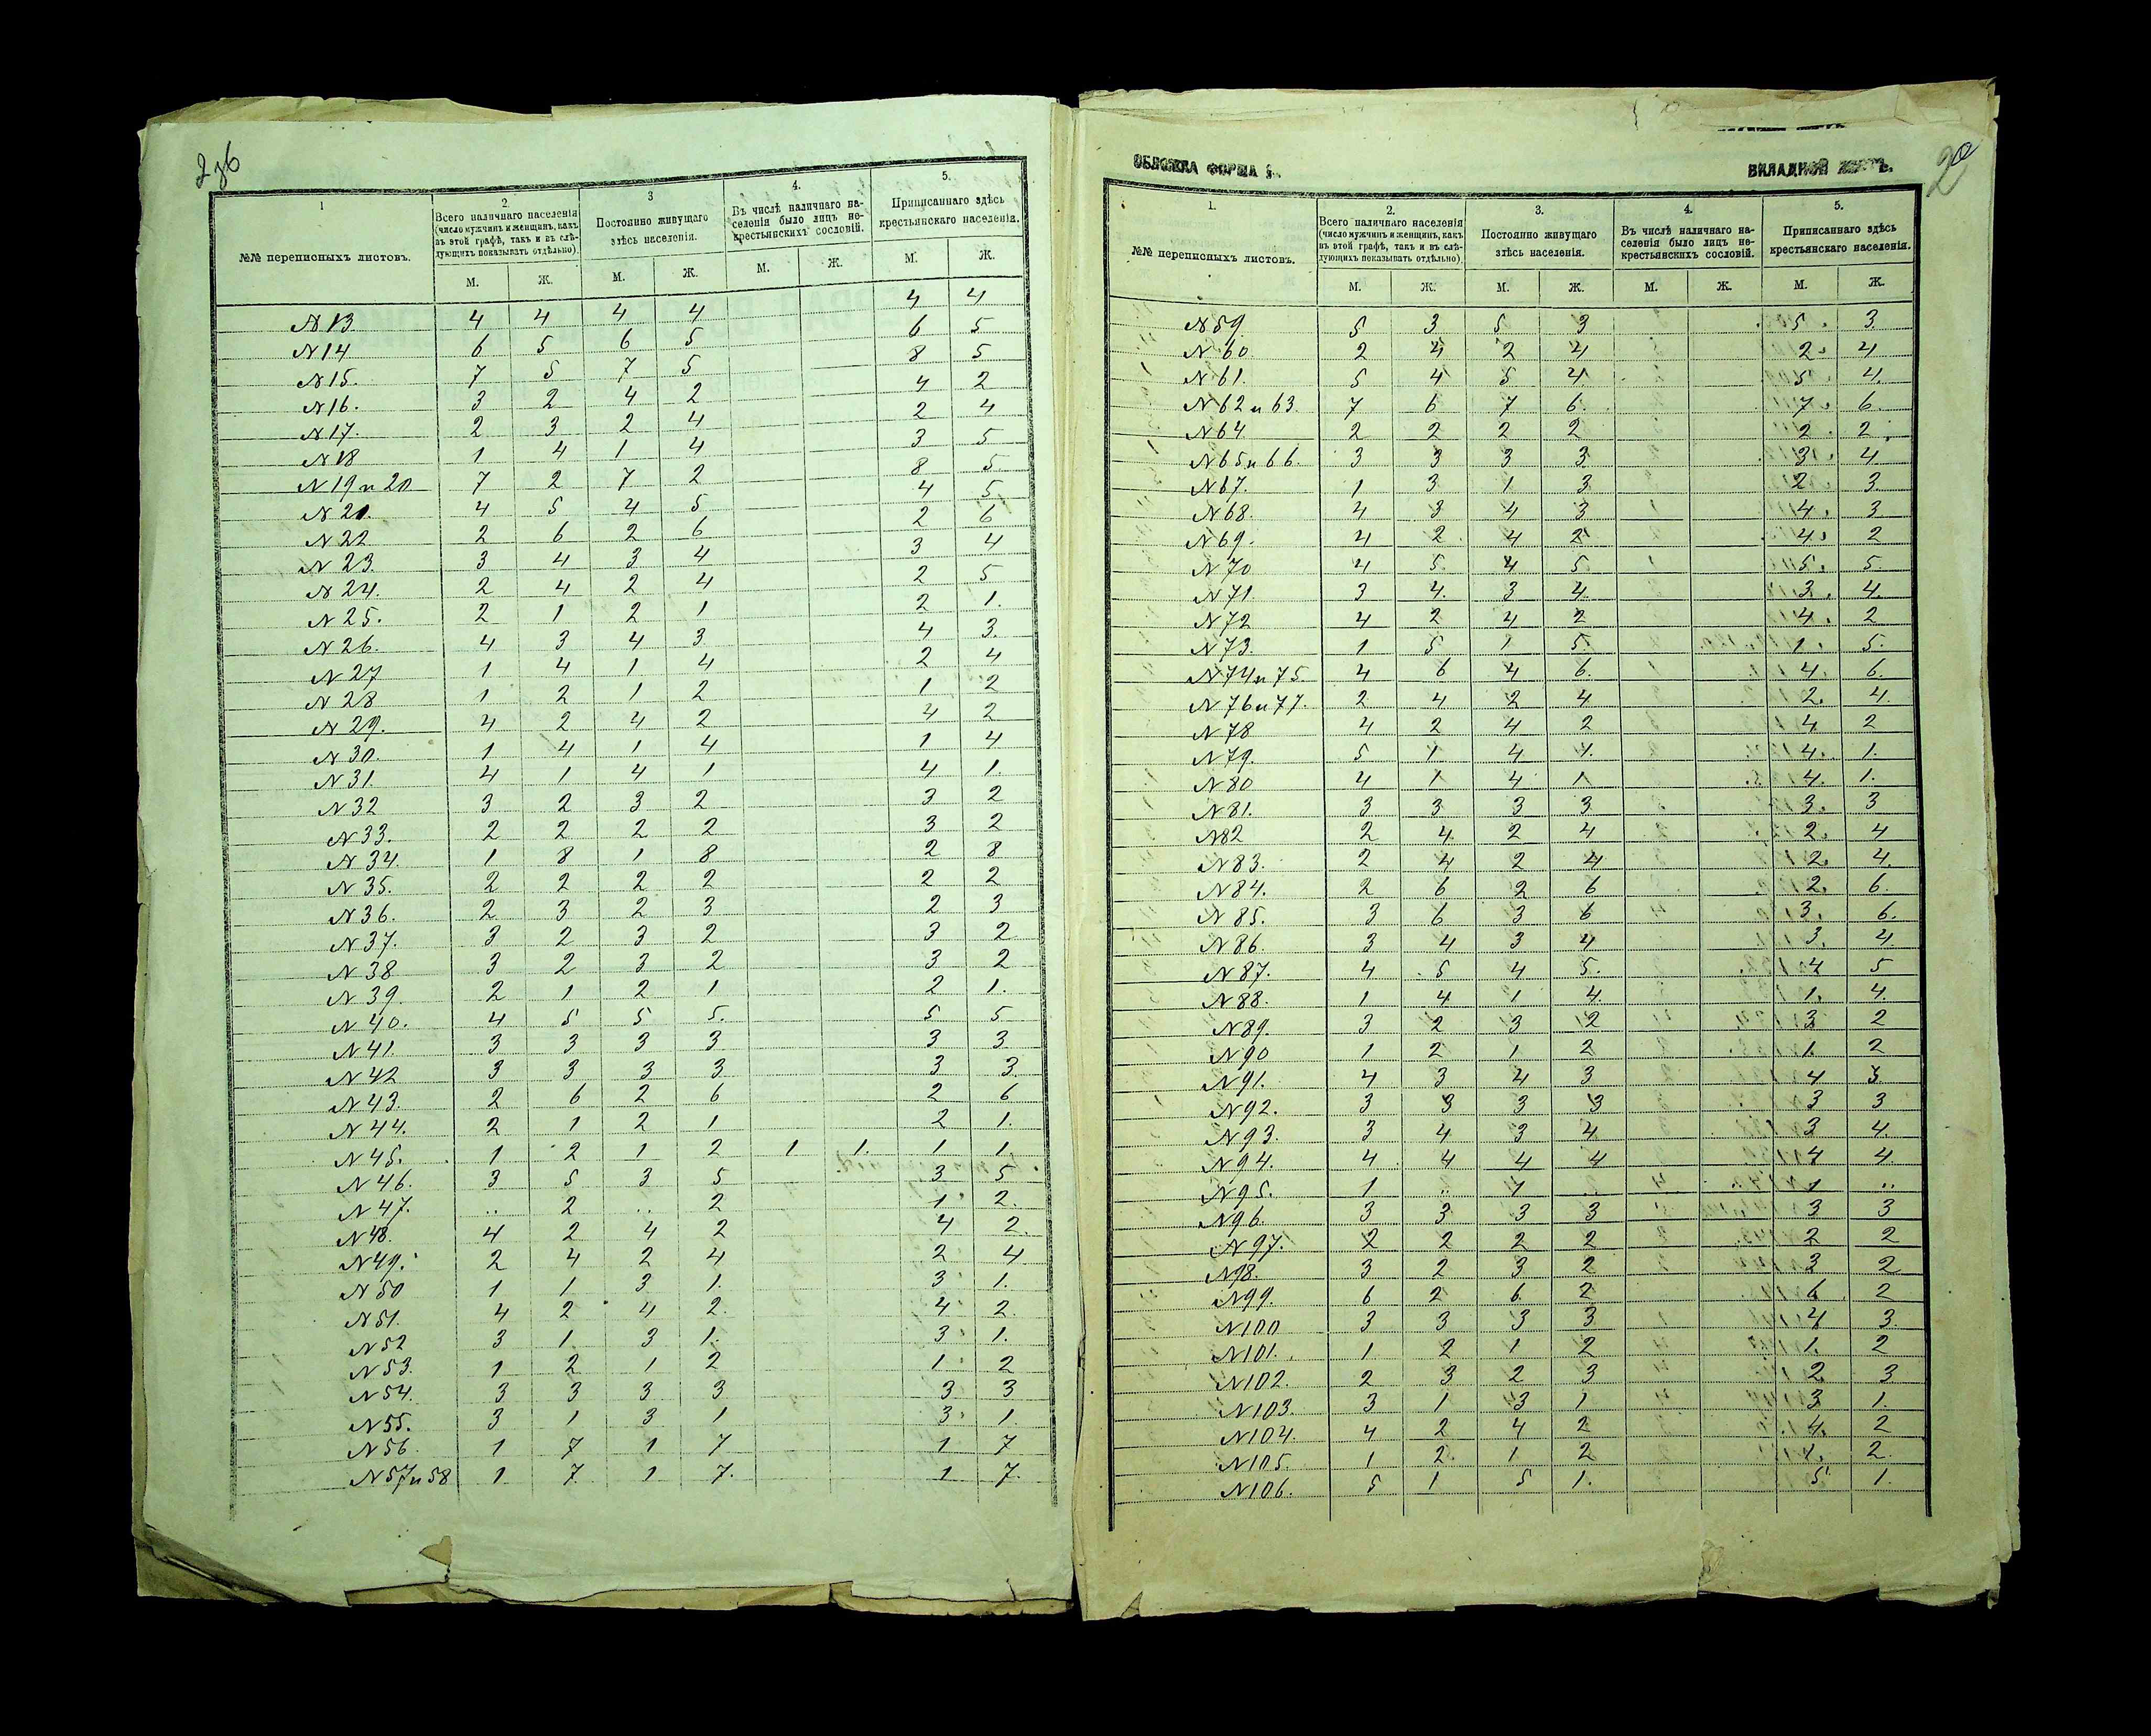 1
2.
Всего наличнаго населенія (число мужчинъ и женщинъ, какъ въ этой графѣ, такъ и въ слѣдующихъ показывать отдѣльно).
3
Постоянно живущаго здѣсь населенія.
4.
Въ числѣ наличнаго населенія было лицъ некрестьянскихъ сословій.
5.
Приписаннаго здѣсь крестьянскаго населенія.
№№ переписныхъ листовъ.
М. Ж. М. Ж. М. Ж. М. Ж.
N 13. 4 4 4 4 4 4
N 14 6 5 6 5 6 5
N 15. 7 5 7 5 8 5
N 16. 3 2 4 2 4 2
N 17. 2 3 2 4 2 4
N 18 1 4 1 4 3 5
N 19 и 20 7 2 7 2 8 5
N 21. 4 5 4 5 4 5
N 22 2 6 2 6 2 6
N 23. 3 4 3 4 3 4
N 24. 2 4 2 4 2 5
N 25. 2 1 2 1 2 1.
N 26. 4 3 4 3 4 3.
N 27 1 4 1 4 2 4
N 28 1 2 1 2 1 2
N 29. 4 2 4 2 4 2
N 30. 1 4 1 4 1 4
N 31. 4 1 4 1 4 1.
N 32 3 2 3 2 3 2
N 33. 2 2 2 2 3 2
N 34. 1 8 1 8 2 8
N 35. 2 2 2 2 2 2
N 36. 2 3 2 3 2 3
N 37. 3 2 3 2 3 2
N 38 3 2 3 2 3 2
N 39. 2 1 2 1 2 1.
N 40. 4 5 5 5. 5 5
N 41. 3 3 3 3 3 3
N 42 3 3 3 3 3 3.
N 43. 2 6 2 6 2 6
N 44. 2 1 2 1 2 1.
N 45. 1 2 1 2 1 1. 1 1.
N 46. 3 5 3 5 3 5
N 47. .. 2 .. 2 1 2.
N 48. 4 2 4 2 4 2.
N 49. 2 4 2 4 2 4
N 50 1 1 3 1. 3 1.
N 51. 4 2 4 2. 4 2.
N 52 3 1 3 1. 3 1.
N 53. 1 2 1 2 1 2
N 54. 3 3 3 3 3 3
N 55. 3 1 3 1 3 1.
N 56. 1 7 1 7 1 7
N 57 и 58 1 7 1 7. 1 7.
ОБЛОЖКА ФОРМА
ВКЛАДНОЙ
20
1.
2.
Всего наличнаго населенія (число мужчинъ и женщинъ, какъ въ этой графѣ, такъ и въ слѣдующихъ показывать отдѣльно).
3.
Постоянно живущаго здѣсь населенія.
4.
Въ числѣ наличнаго населенія было лицъ некрестьянскихъ сословій.
5.
Приписаннаго здѣсь крестьянскаго населенія.
№№ переписныхъ листовъ.
М. Ж. М. Ж. М. Ж. М. Ж.
N 59. 5 3 5 3 5 3
N 60. 2 4 2 4 2 4
N 61. 5 4 5 4 5 4.
N 62 и 63. 7 6 7 6. 7 6.
N 64 2 2 2 2 2 2
N 65 и 66. 3 3 3 3 3 4.
N 67. 1 3 1 3 2 3.
N 68. 4 3 4 3 4 3
N 69. 4 2 4 2 4 2
N 70 4 5. 4 5 5 5
N 71 3 4. 3 4 3 4.
N 72 4 2 4 2 4 2
N 73. 1 5 1 5. 1 5.
N 74 и 75. 4 6 4 6. 4 6.
N 76 и 77. 2 4 2 4 2 4.
N 78 4 2 4 2 4 2
N 79. 5 1 4 1. 4 1.
N 80 4 1 4 1 4. 1.
N 81. 3 3 3 3 3. 3
N 82 2 4. 2 4 2. 4
N 83. 2 4 2 4 2. 4.
N 84. 2 6 2 6 2. 6.
N 85. 3 6 3 6 3. 6.
N 86. 3 4 3 4 3. 4
N 87. 4 5 4 5. 4 5
N 88. 1 4 1 4. 1. 4.
N 89. 3 2 3 2 3 2
N 90 1 2 1 2 1. 2
N 91. 4 3 4 3 4 3
N 92. 3 3 3 3 3 3
N 93. 3 4 3 4 3 4.
N 94. 4 4 4 4 4 4.
N 95. 1 .. 1 .. 1 ..
N 96. 3 3 3 3 3 3
N 97. 2 2 2 2 2 2
N 98. 3 2 3 2 3 2
N 99. 6 2 6 2 6 2
N 100 3 3 3 3 4 3
N 101. 1 2 1 2 1. 2
N 102. 2 3 2 3 2 3
N 103. 3 1 3 1 3 1.
N 104. 4 2 4 2 4. 2
N 105. 1 2. 1 2 1. 2.
N 106. 5 1 5 1. 5 1.